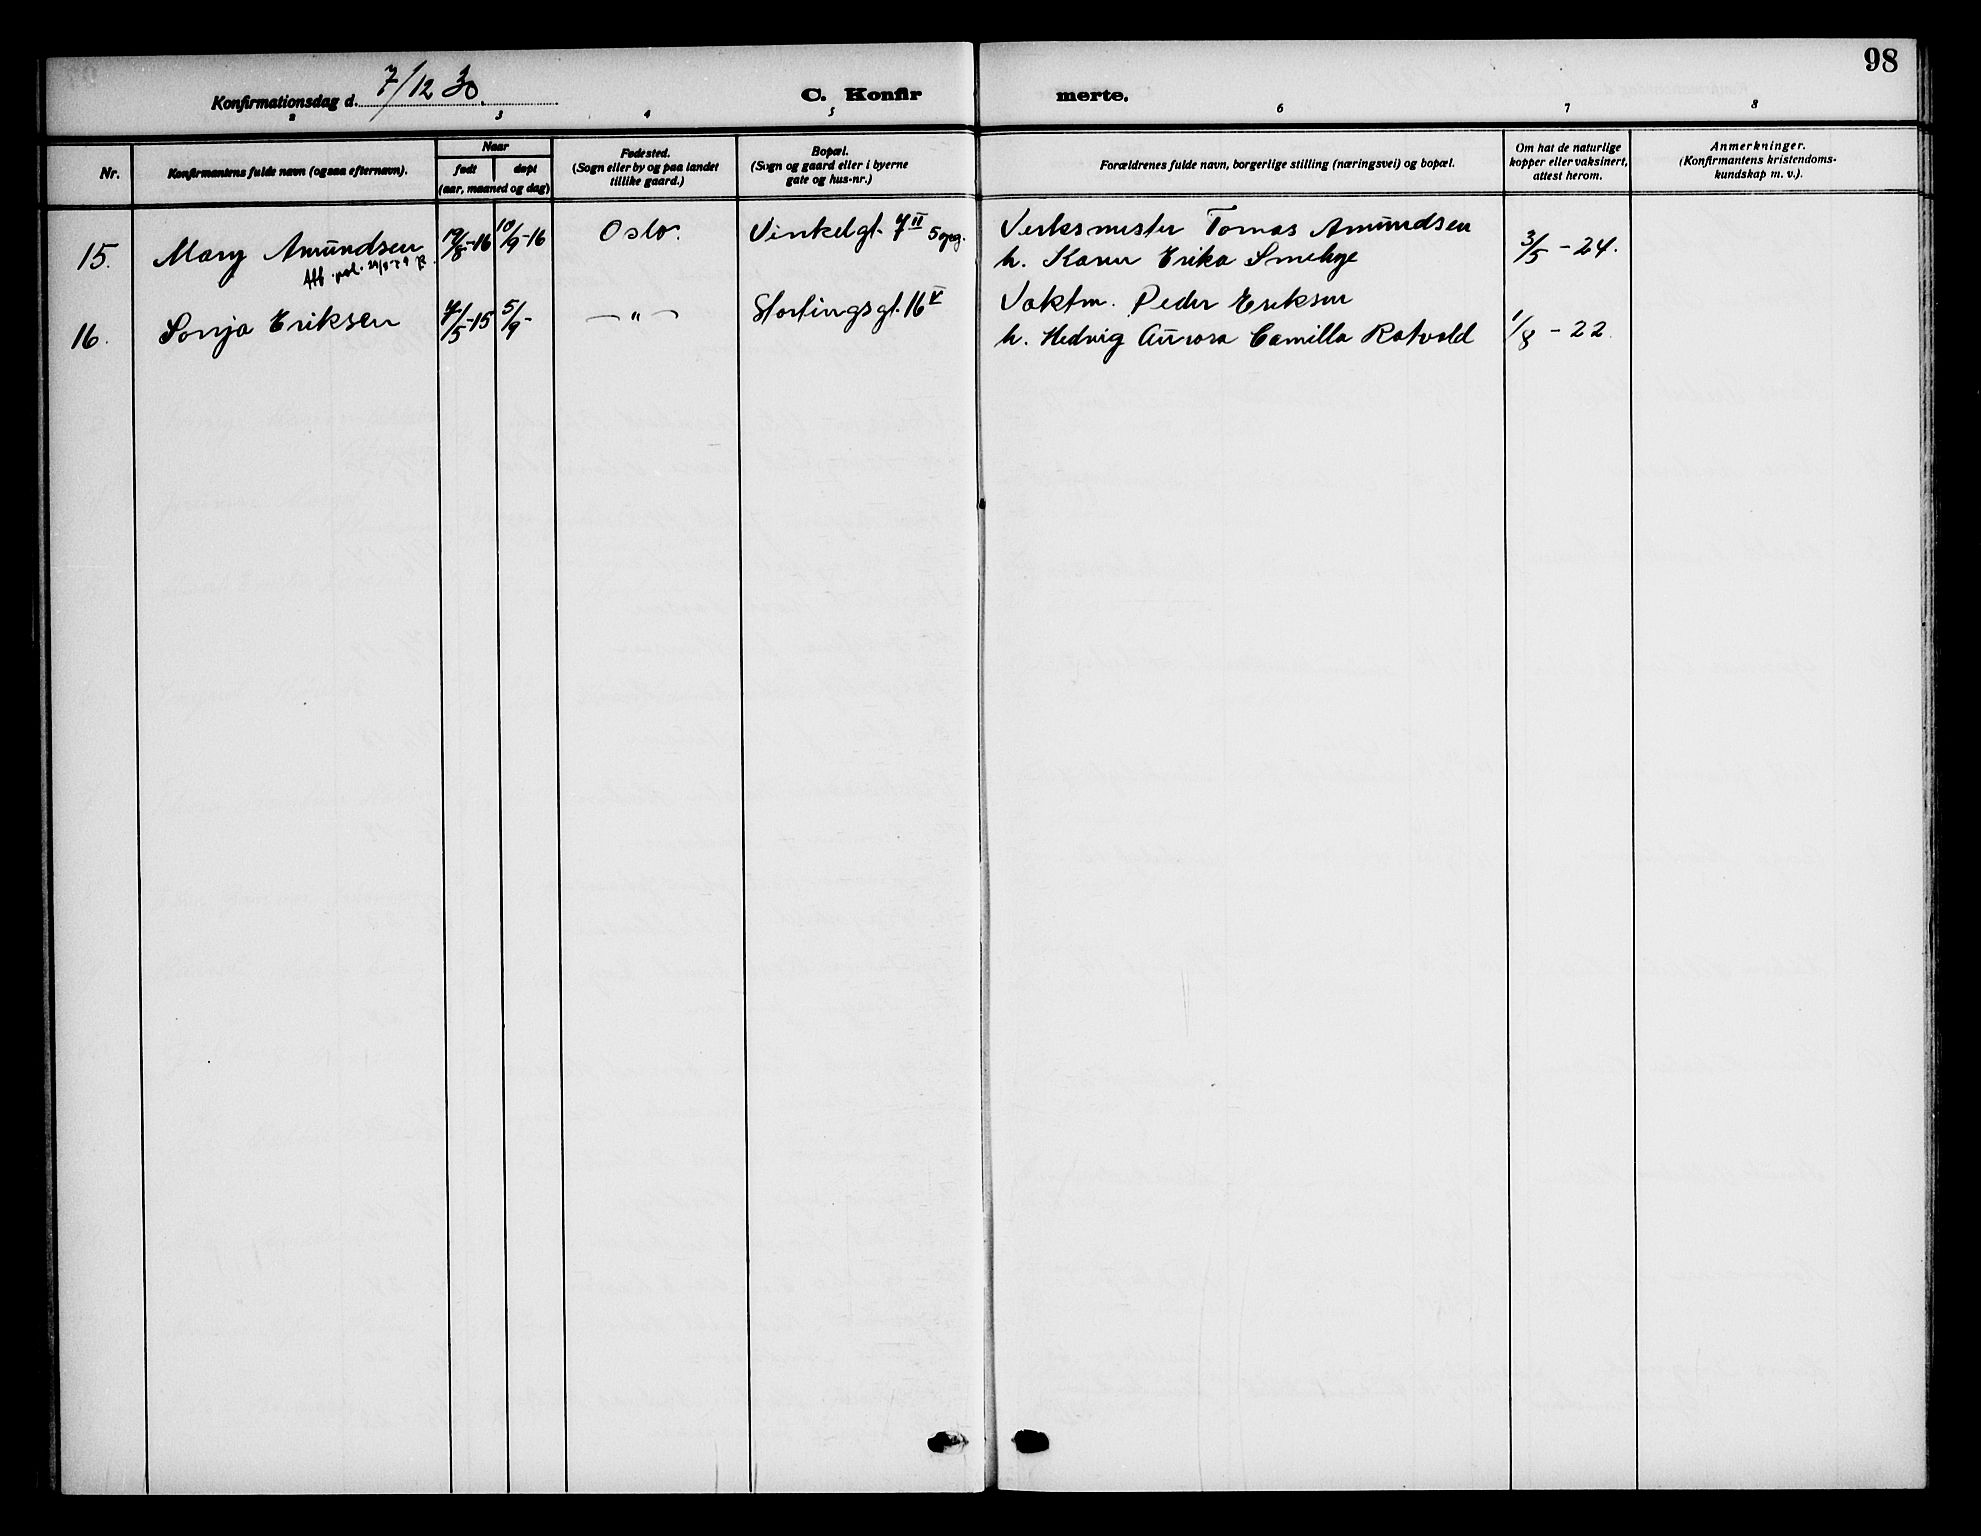 98
Konfirmationsdag d. 7/12 30. C. Konfir merte.
2 3 4 5 6 7 8
Nr.
Konfirmantens fulde navn (ogsaa efternavn).
Naar
født døpt
(aar, maaned og dag)
Fødested.
(Sogn eller by og paa landet
tillike gaard.)
Bopæl.
(Sogn og gaard eller i byerne
gate og hus-nr.)
Forældrenes fulde navn, borgerlige stilling (næringsvei) og bopæl.
Om hat de naturlige
kopper eller vaksinert,
attest herom.
Anmerkninger.
(Konfirmantens kristendoms-
kundskap m. v.).
15. Mary Amundsen 19/8-16 10/9-16 Oslo. Vinkelgt. 7 II 5 opg. Verksmester Tomas Amundsen 3/5 - 24.
h. Karen Erika Smehye
16. Sonja Eriksen 7/5-15 5/9- — " — Stortingsgt. 16 V Vaktm. Peder Eriksen 1/8 - 22.
h. Hedvig Aurora Camilla Ratvold